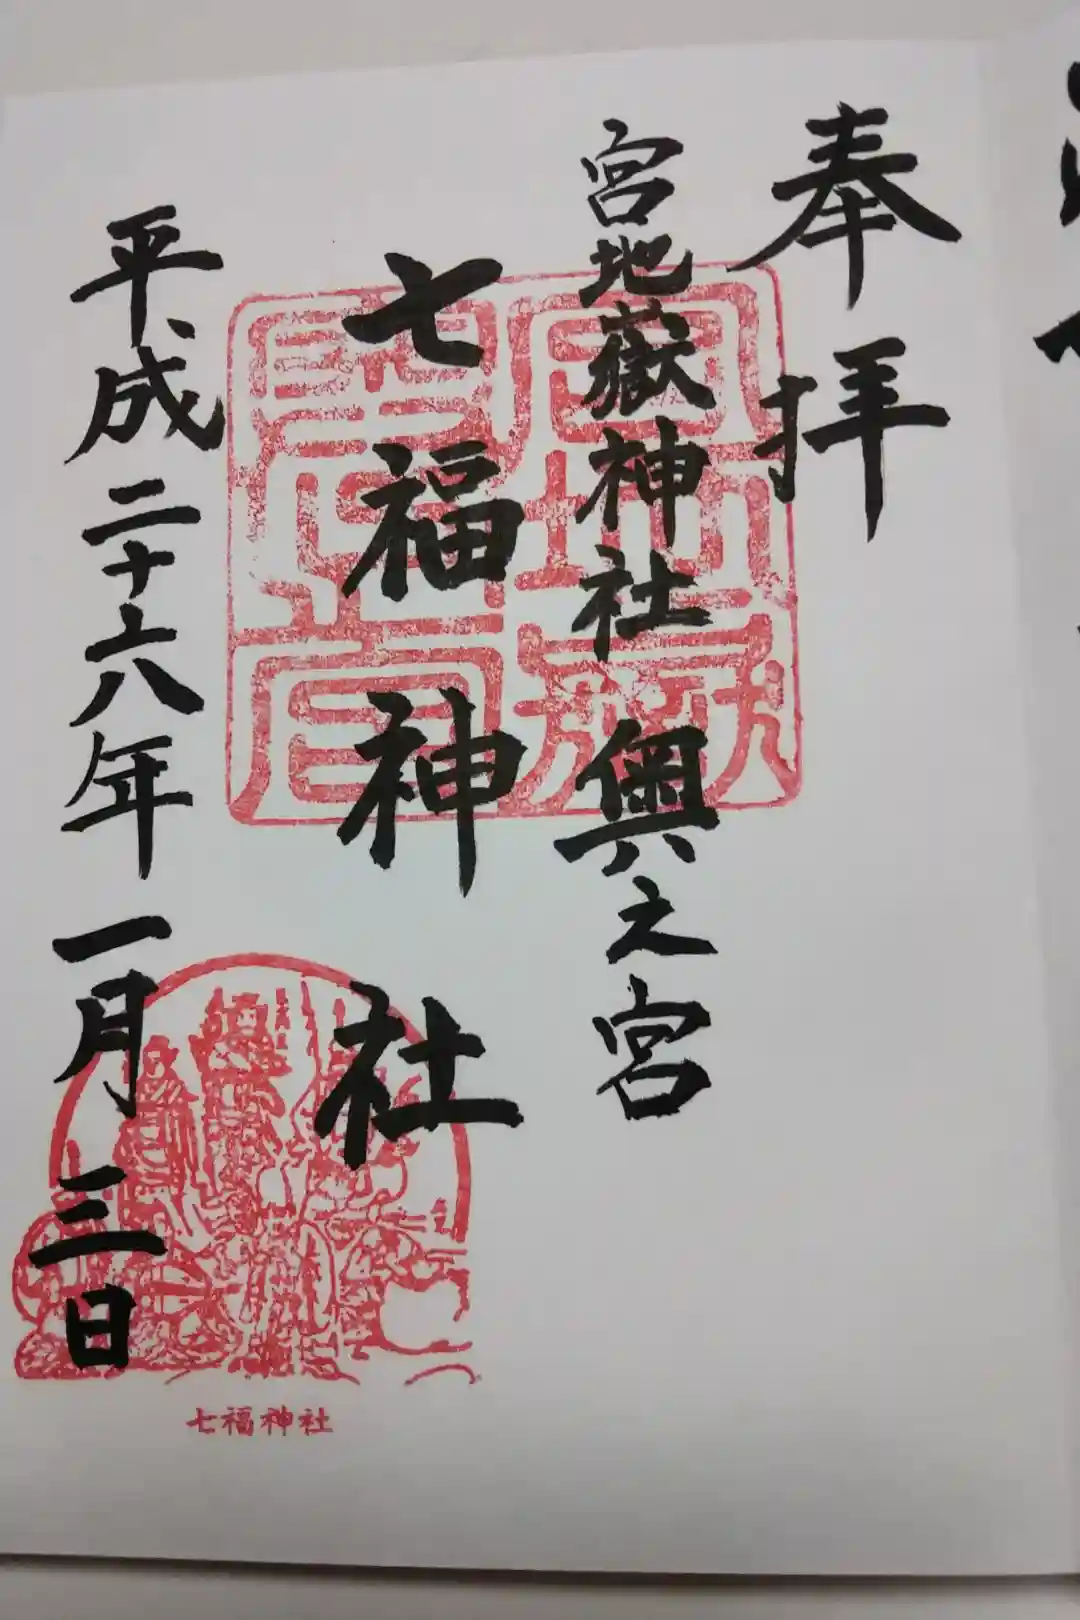 奉拝
宮地嶽神社奥之宮
七福神社
平成二十六年一月三日
七福神社